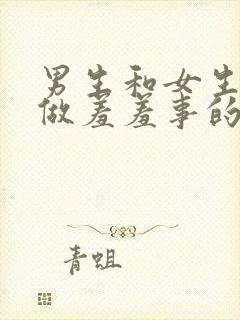 男生和女生
做羞羞事的
青蛆